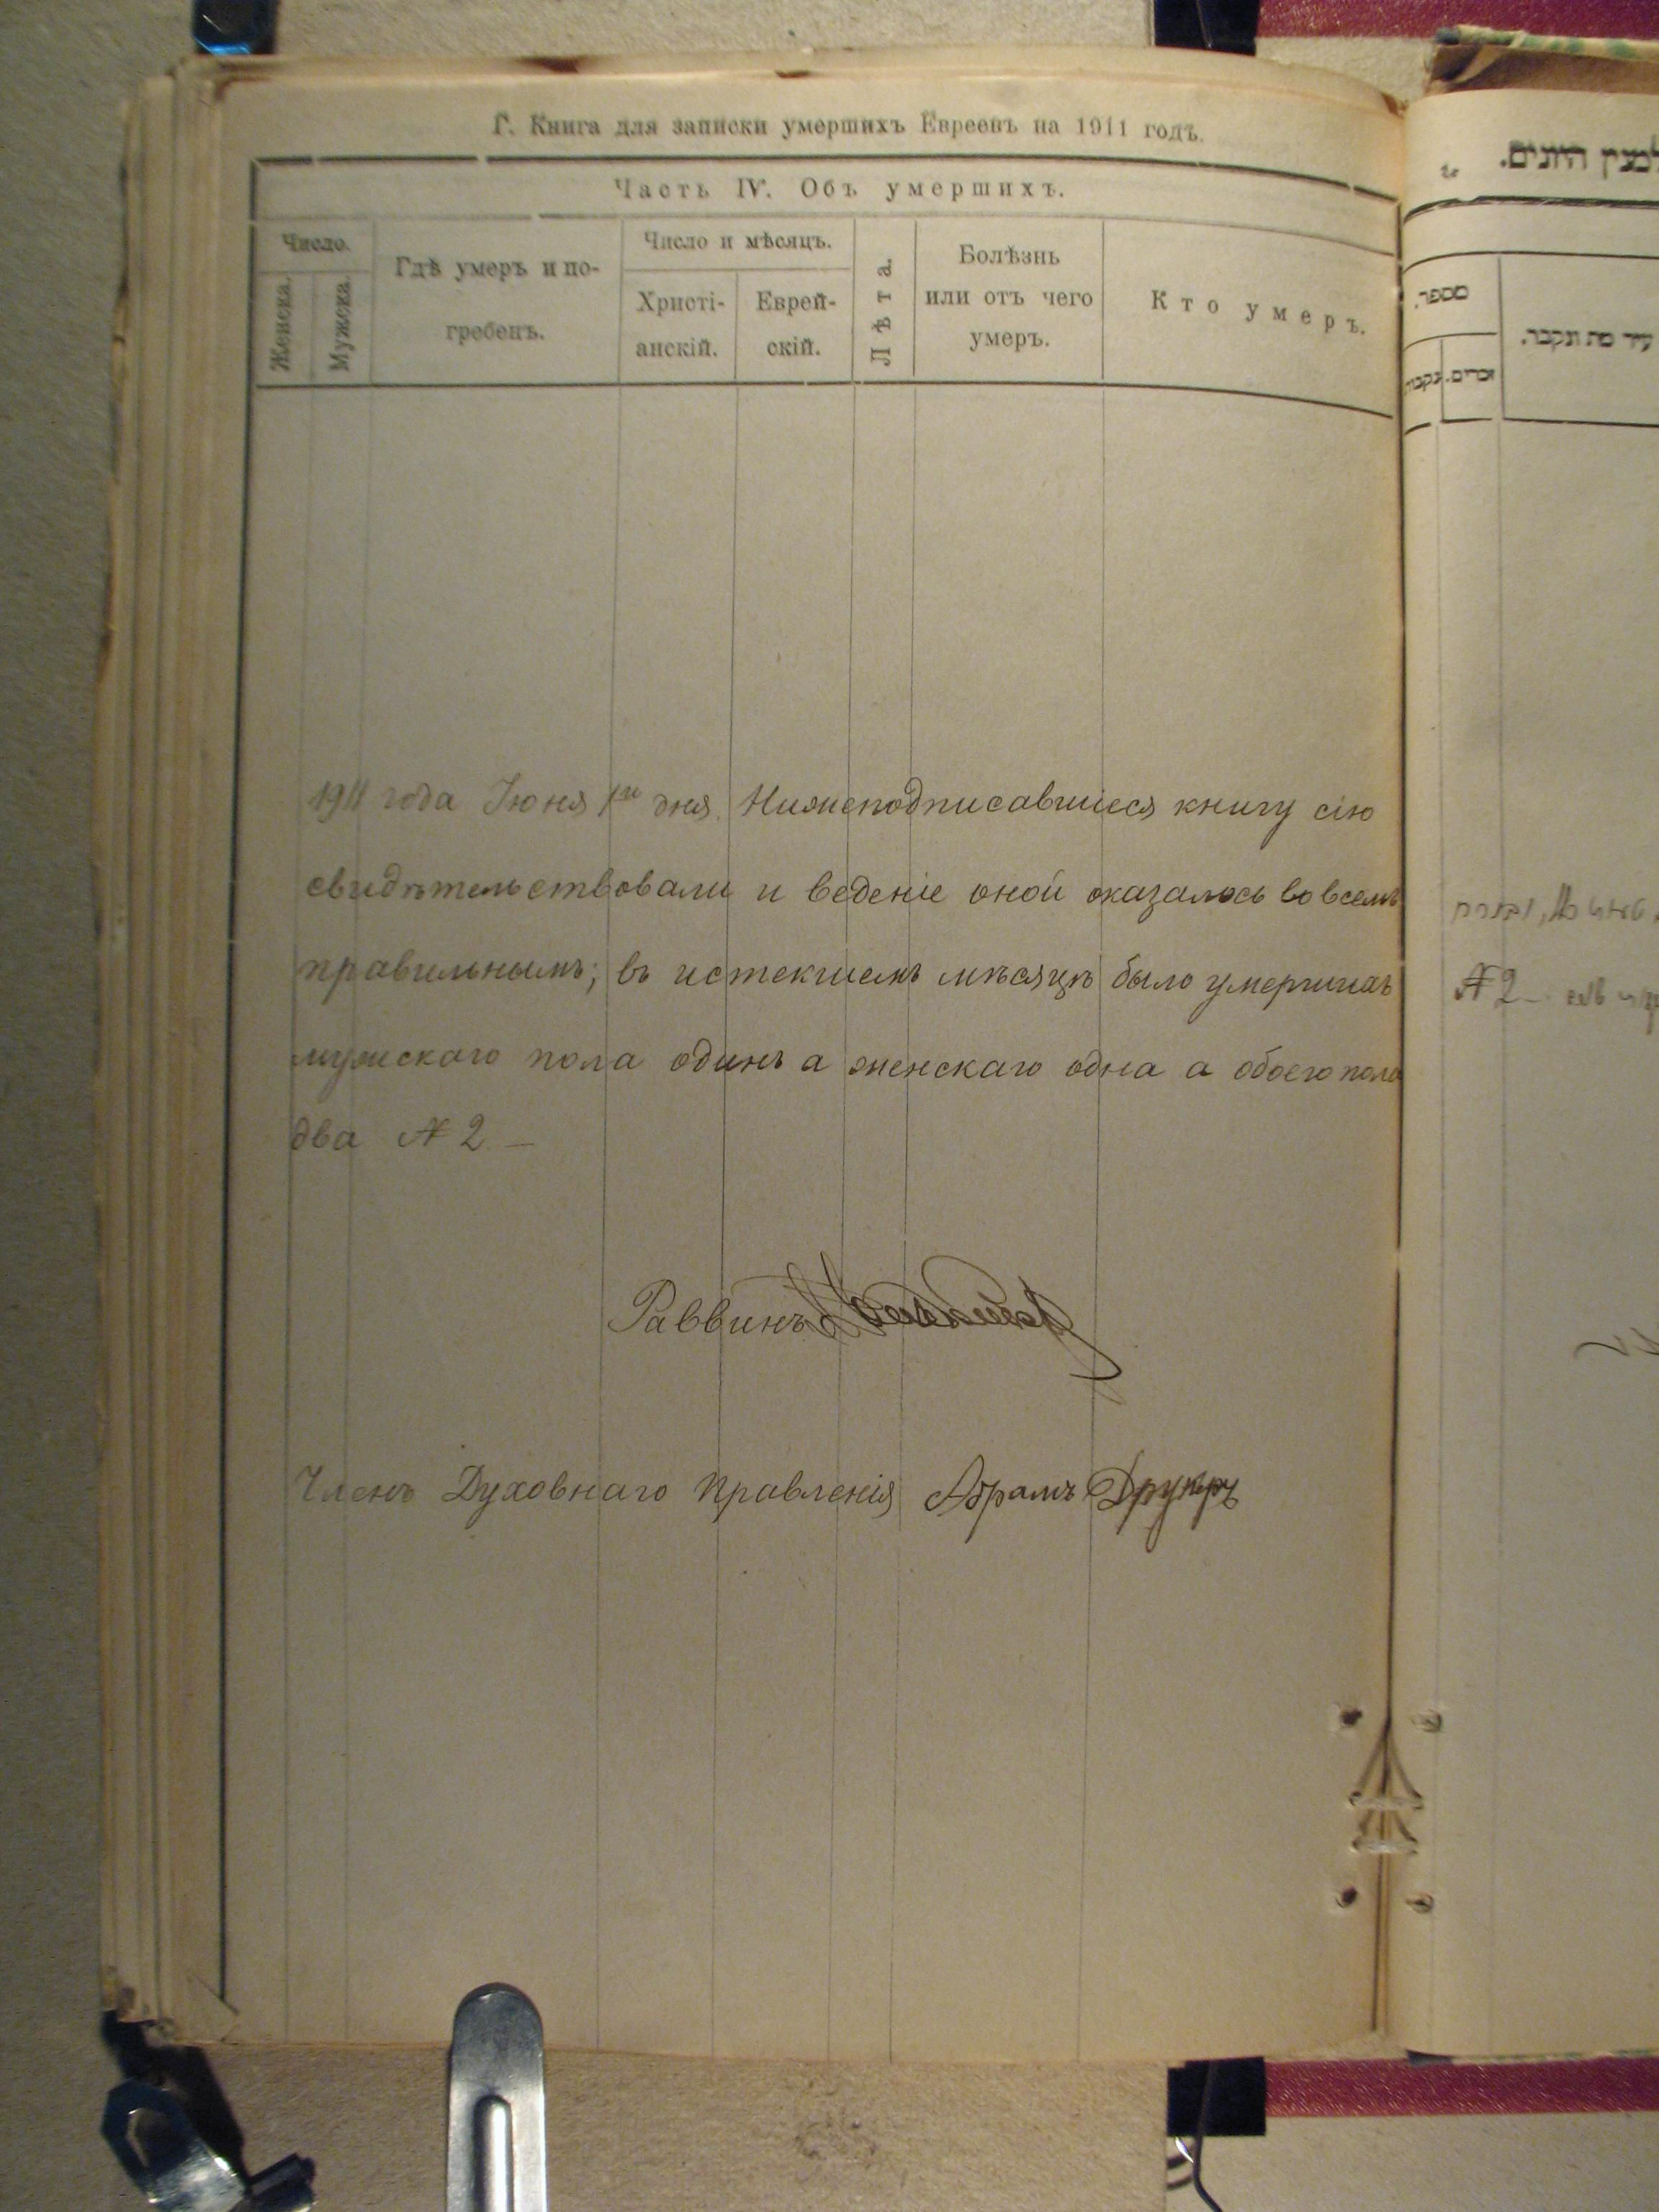 Г. Книга для записки умершихъ Евреевъ на 1911 годъ.
Часть IV. Объ умершихъ.
Число.
Женска.
Мужска.
Гдѣ умеръ и по-
гребенъ.
Число и мѣсяцъ.
Христі-
анскій.
Еврей-
скій.
Лѣта.
Болѣзнь
или отъ чего
умеръ.
Кто умеръ.
1911 года Іюня 1го дня. Нижеподписавшіеся книгу сію
свидѣтельствовали и веденіе оной оказалось во всемъ
правильнымъ; въ истекшемъ мѣсяцѣ было умершихъ
мужскаго пола одинъ а женскаго одна а обоего пола
два № 2 —
Раввинъ
Членъ Духовнаго Правленія Абрамъ Друкеръ
היונים.
מספר.
זכרים.
עיר מת ונקבר.
№ 2 —